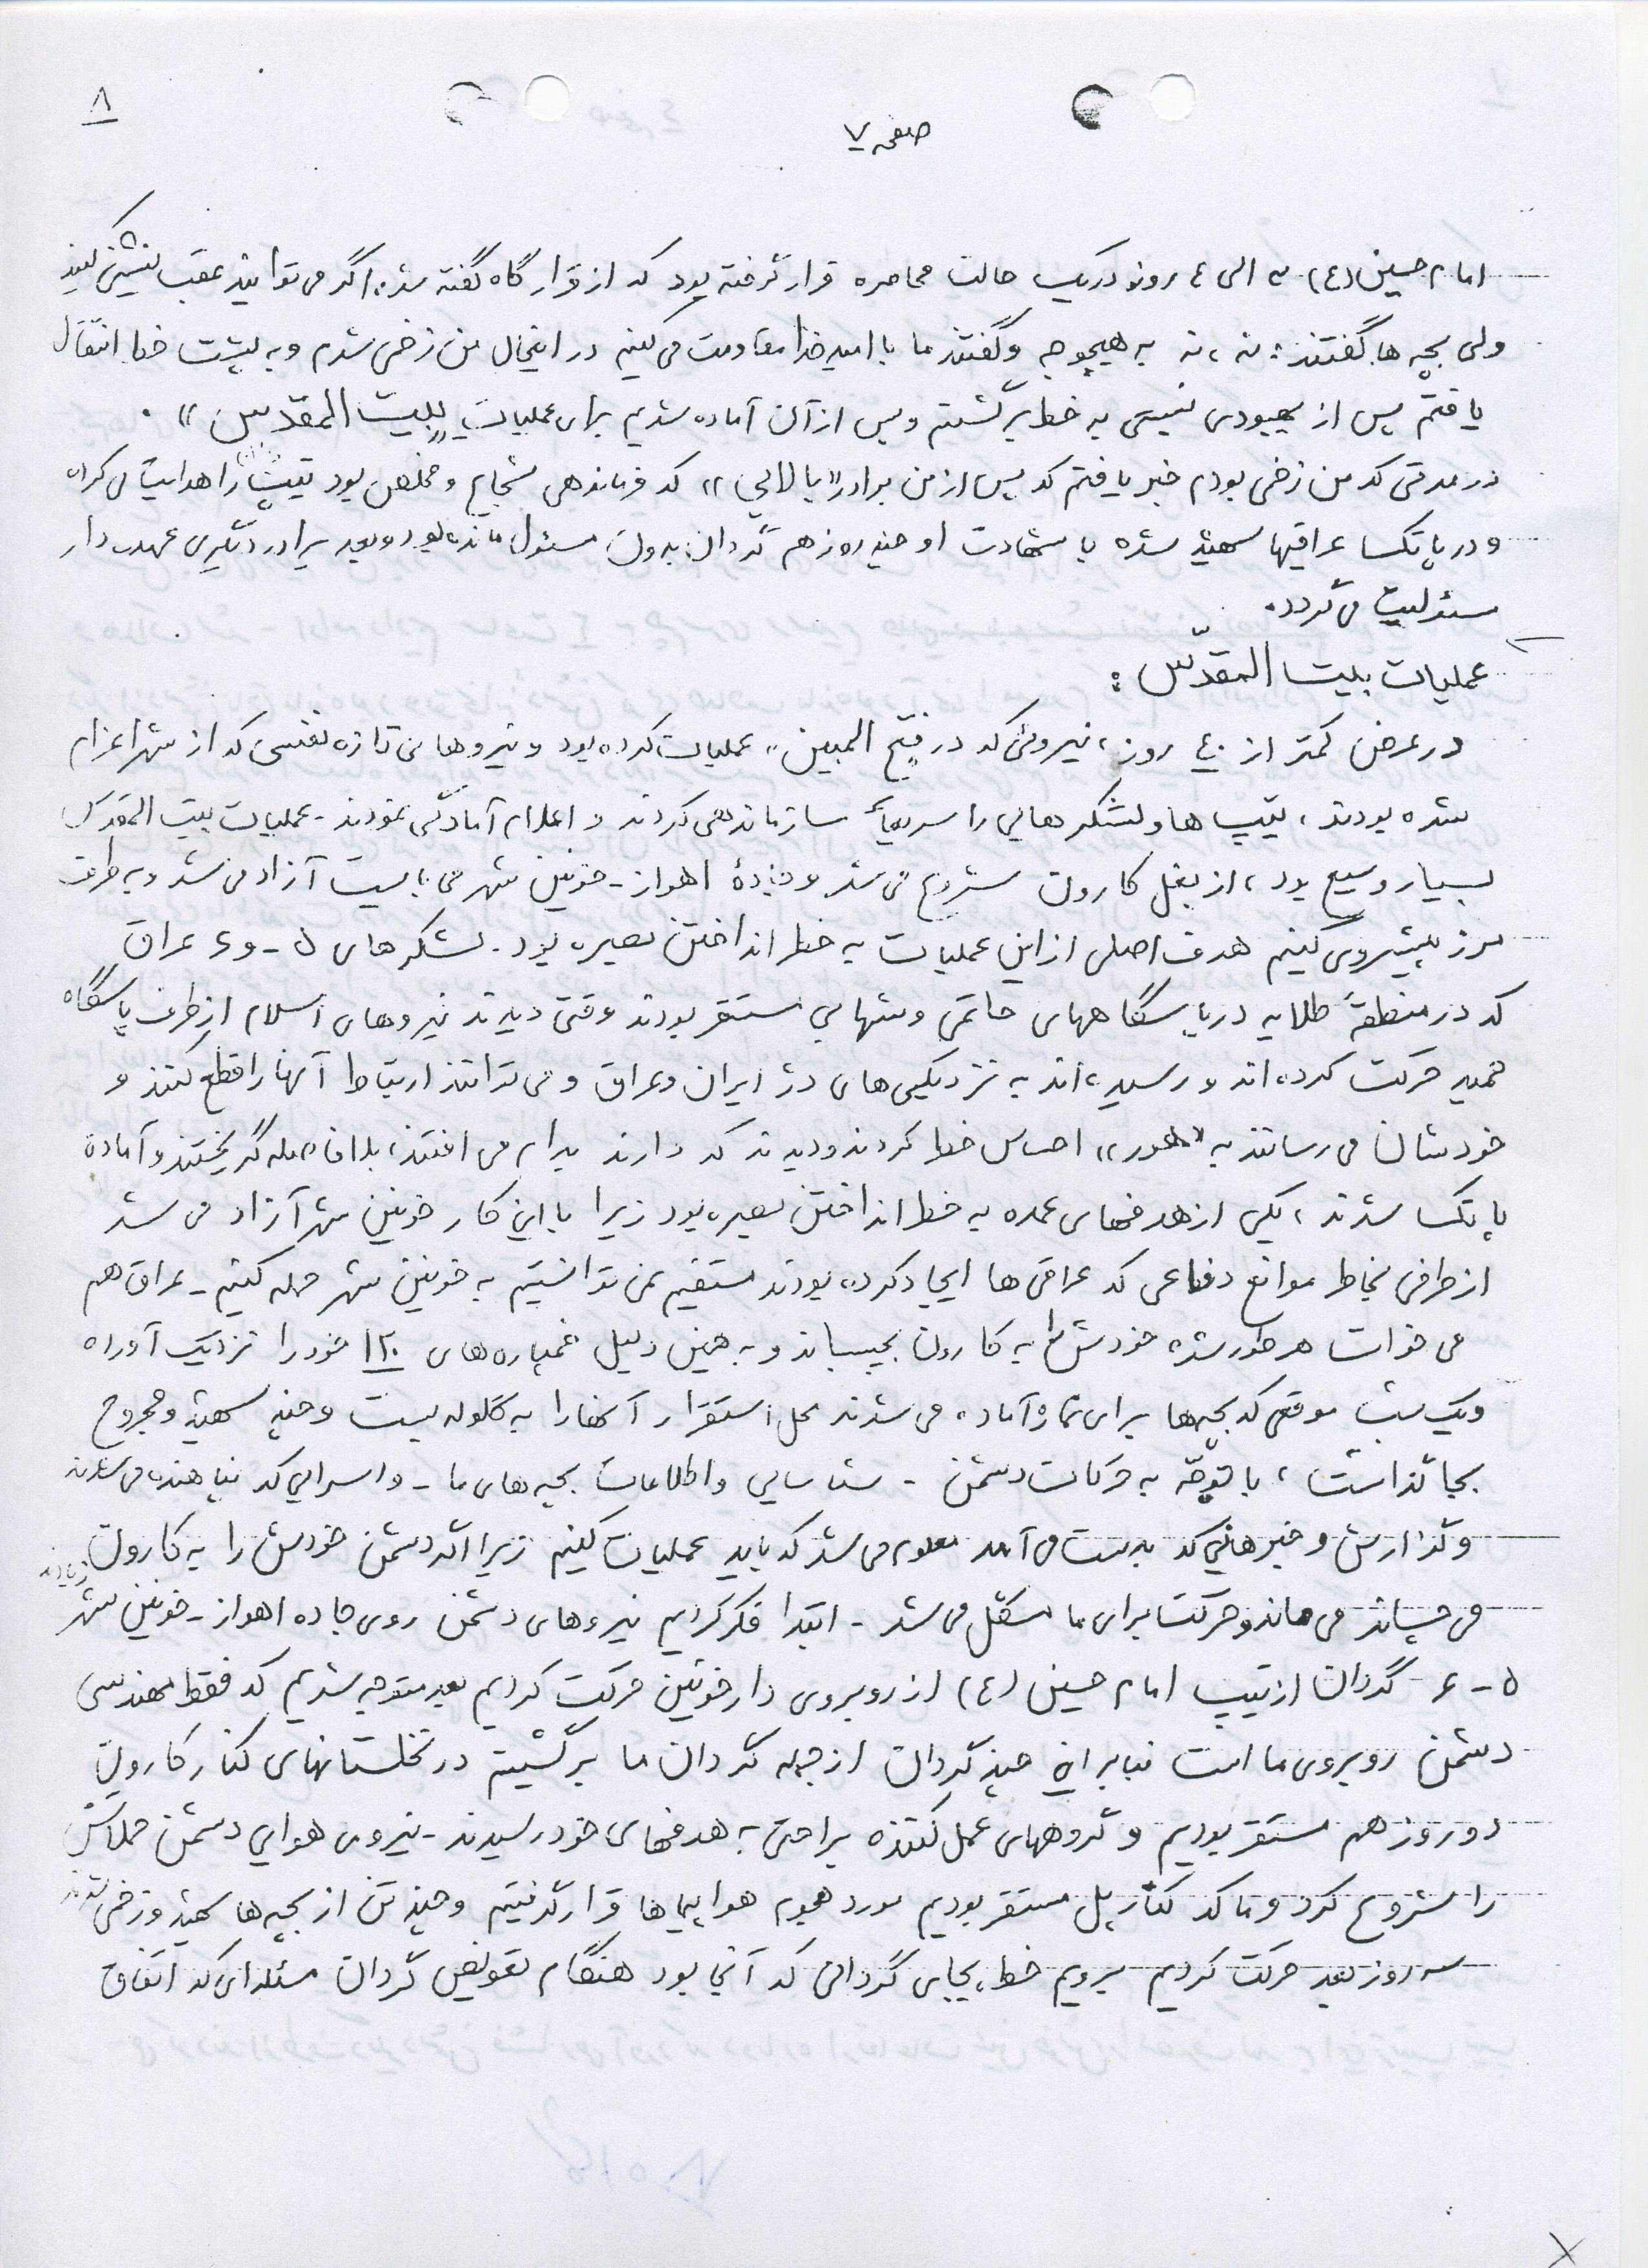 ۸
صفحه ۷
امام حسین (ع) ۳ الی ٤ روز در یک حالت محاصره قرار گرفته بود که از قرارگاه گفته شده اگر می توانید عقب نشینی کنید
ولی بچه ها گفتند: نه، نه به هیچوجه و گفتند ما با امید خدا مقاومت می کنیم در اینحال من زخمی شدم و به پشت خط انتقال
یافتم پس از بهبودی نسبی به خط برگشتم و پس از آن آماده شدیم برای عملیات «بیت المقدس».
در مدتی که من زخمی بودم خبر یافتم که پس از من برادر «بالالی» که فرماندهی شجاع و مخلص بود تیپ را هدایت می کرده
و در پاتک عراقیها شهید شده با شهادت او چند روز هم گردان بدون مسئول مانده بود و بعد برادر دیگری عهده دار
مسئولیت می گردد.
عملیات بیت المقدّس:
در عرض کمتر از ٤۰ روز، نیروئی که در «فتح المبین» عملیات کرده بود و نیروهای تازه نفسی که از شهر اعزام
شده بودند، تیپ ها و لشکرهایی را سریعاً سازماندهی کردند و اعلام آمادگی نمودند - عملیات بیت المقدس
بسیار وسیع بود، از بغل کارون شروع می شد و جادهٔ اهواز - خونین شهر می بایست آزاد می شد و به طرف
مرز پیشروی کنیم هدف اصلی از این عملیات به خطر انداختن بصره بود. لشکرهای ۵ - و ۶ عراق
که در منطقهٔ طلایه در پاسگاههای خاتمی و شهابی مستقر بودند وقتی دیدند نیروهای اسلام از طرف پاسگاه
حمید حرکت کرده اند و رسیده اند به نزدیکی های دژ ایران و عراق و می توانند ارتباط آنها را قطع کنند و
خودشان می رسانند به «هور» احساس خطر کردند و دیدند که دارند بدام می افتند، بلافاصله گریختند و آمادهٔ
پاتک شدند، یکی از هدفهای عمده به خطر انداختن بصره بود زیرا با این کار خونین شهر آزاد می شد
از طرفی بخاطر موانع دفاعی که عراقی ها ایجاد کرده بودند مستقیم نمی توانستیم به خونین شهر حمله کنیم - عراق هم
می خواست هر طور شده خودش را به کارون بچسباند و به همین دلیل خمپاره های ۱۲۰ خود را نزدیک آورده
و یک شب موقعی که بچه ها برای نماز آماده می شدند محل استقرار آنها را به گلوله بست و چند شهید و مجروح
بجا گذاشت، با توجّه به حرکات دشمن - شناسایی و اطلاعات بچه های ما - و اسرایی که پناهنده می شدند
و گزارش و خبرهائی که بدست می آمد معلوم می شد که باید عملیات کنیم زیرا اگر دشمن خودش را به کارون
می چساند می ماند و حرکت برای ما مشکل می شد - ابتدا فکر کردیم نیروهای دشمن روی جاده اهواز - خونین شهر
۵ - ۶ گردان از تیپ امام حسین (ع) از روبروی دارخوئین حرکت کردیم بعد متوجه شدیم که فقط مهندسی
دشمن روبروی ما است بنابراین چند گردان از جمله گردان ما برگشتیم در نخلستانهای کنار کارون
دو روز هم مستقر بودیم و گروههای عمل کننده براحتی به هدفهای خود رسیدند - نیروی هوایی دشمن حملاتش
را شروع کرد و ما که کنار پل مستقر بودیم مورد هجوم هواپیماها قرار گرفتیم و چند تن از بچه ها شهید و زخمی شدند
سه روز بعد حرکت کردیم برویم خط، بجای گردانی که آنجا بود هنگام تعویض گردان مسئله ای که اتفاق